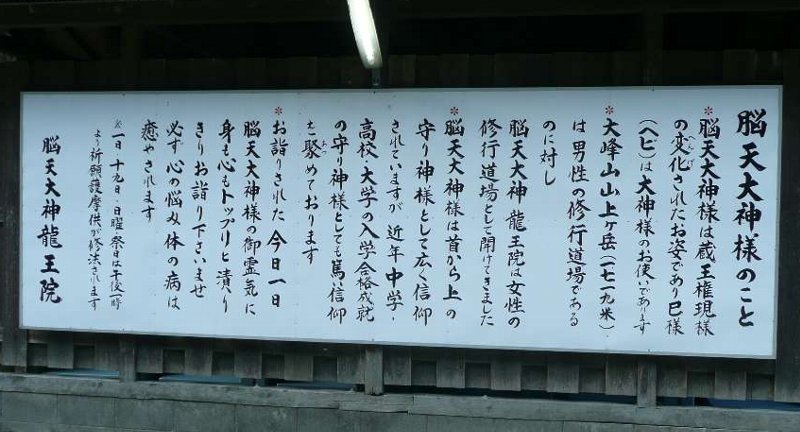 脳天大神様のこと
*脳天大神様は蔵王権現様
の変化されたお姿であり巳様
(ヘビ)は大神様のお使いであります
*大峰山山上ヶ岳(一七一九米)
は男性の修行道場である
のに対し
脳天大神龍王院は女性の
修行道場として開けてきました
*脳天大神様は首から上の
守り神様として広く信仰
されていますが近年中学・
高校・大学の入学合格成就
の守り神様としても篤い信仰
を聚めております
*お詣りされた今日一日
脳天大神様の御霊気に
身も心もトップリと漬り
きりお詣り下さいませ
必ず心の悩み体の病は
癒やされます
※一日 十九日・日曜祭日は午後一時
より祈願護摩供が修法されます
脳天大神龍王院